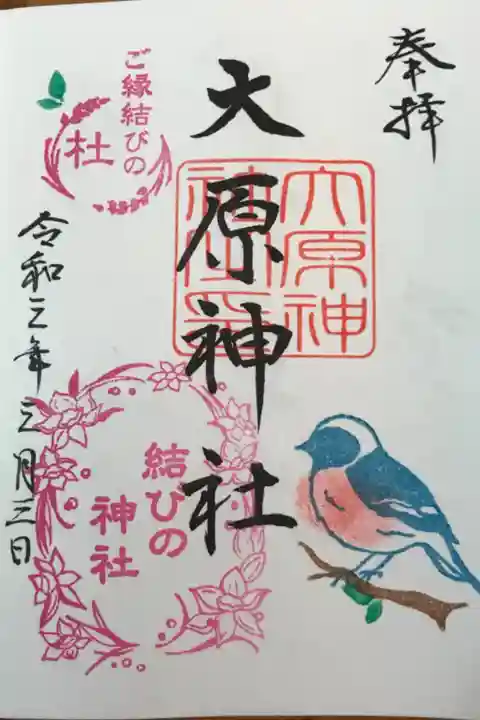 奉拝
大原神社
大原神
社印
ご縁結びの
杜
結びの
神社
令和三年三月三日